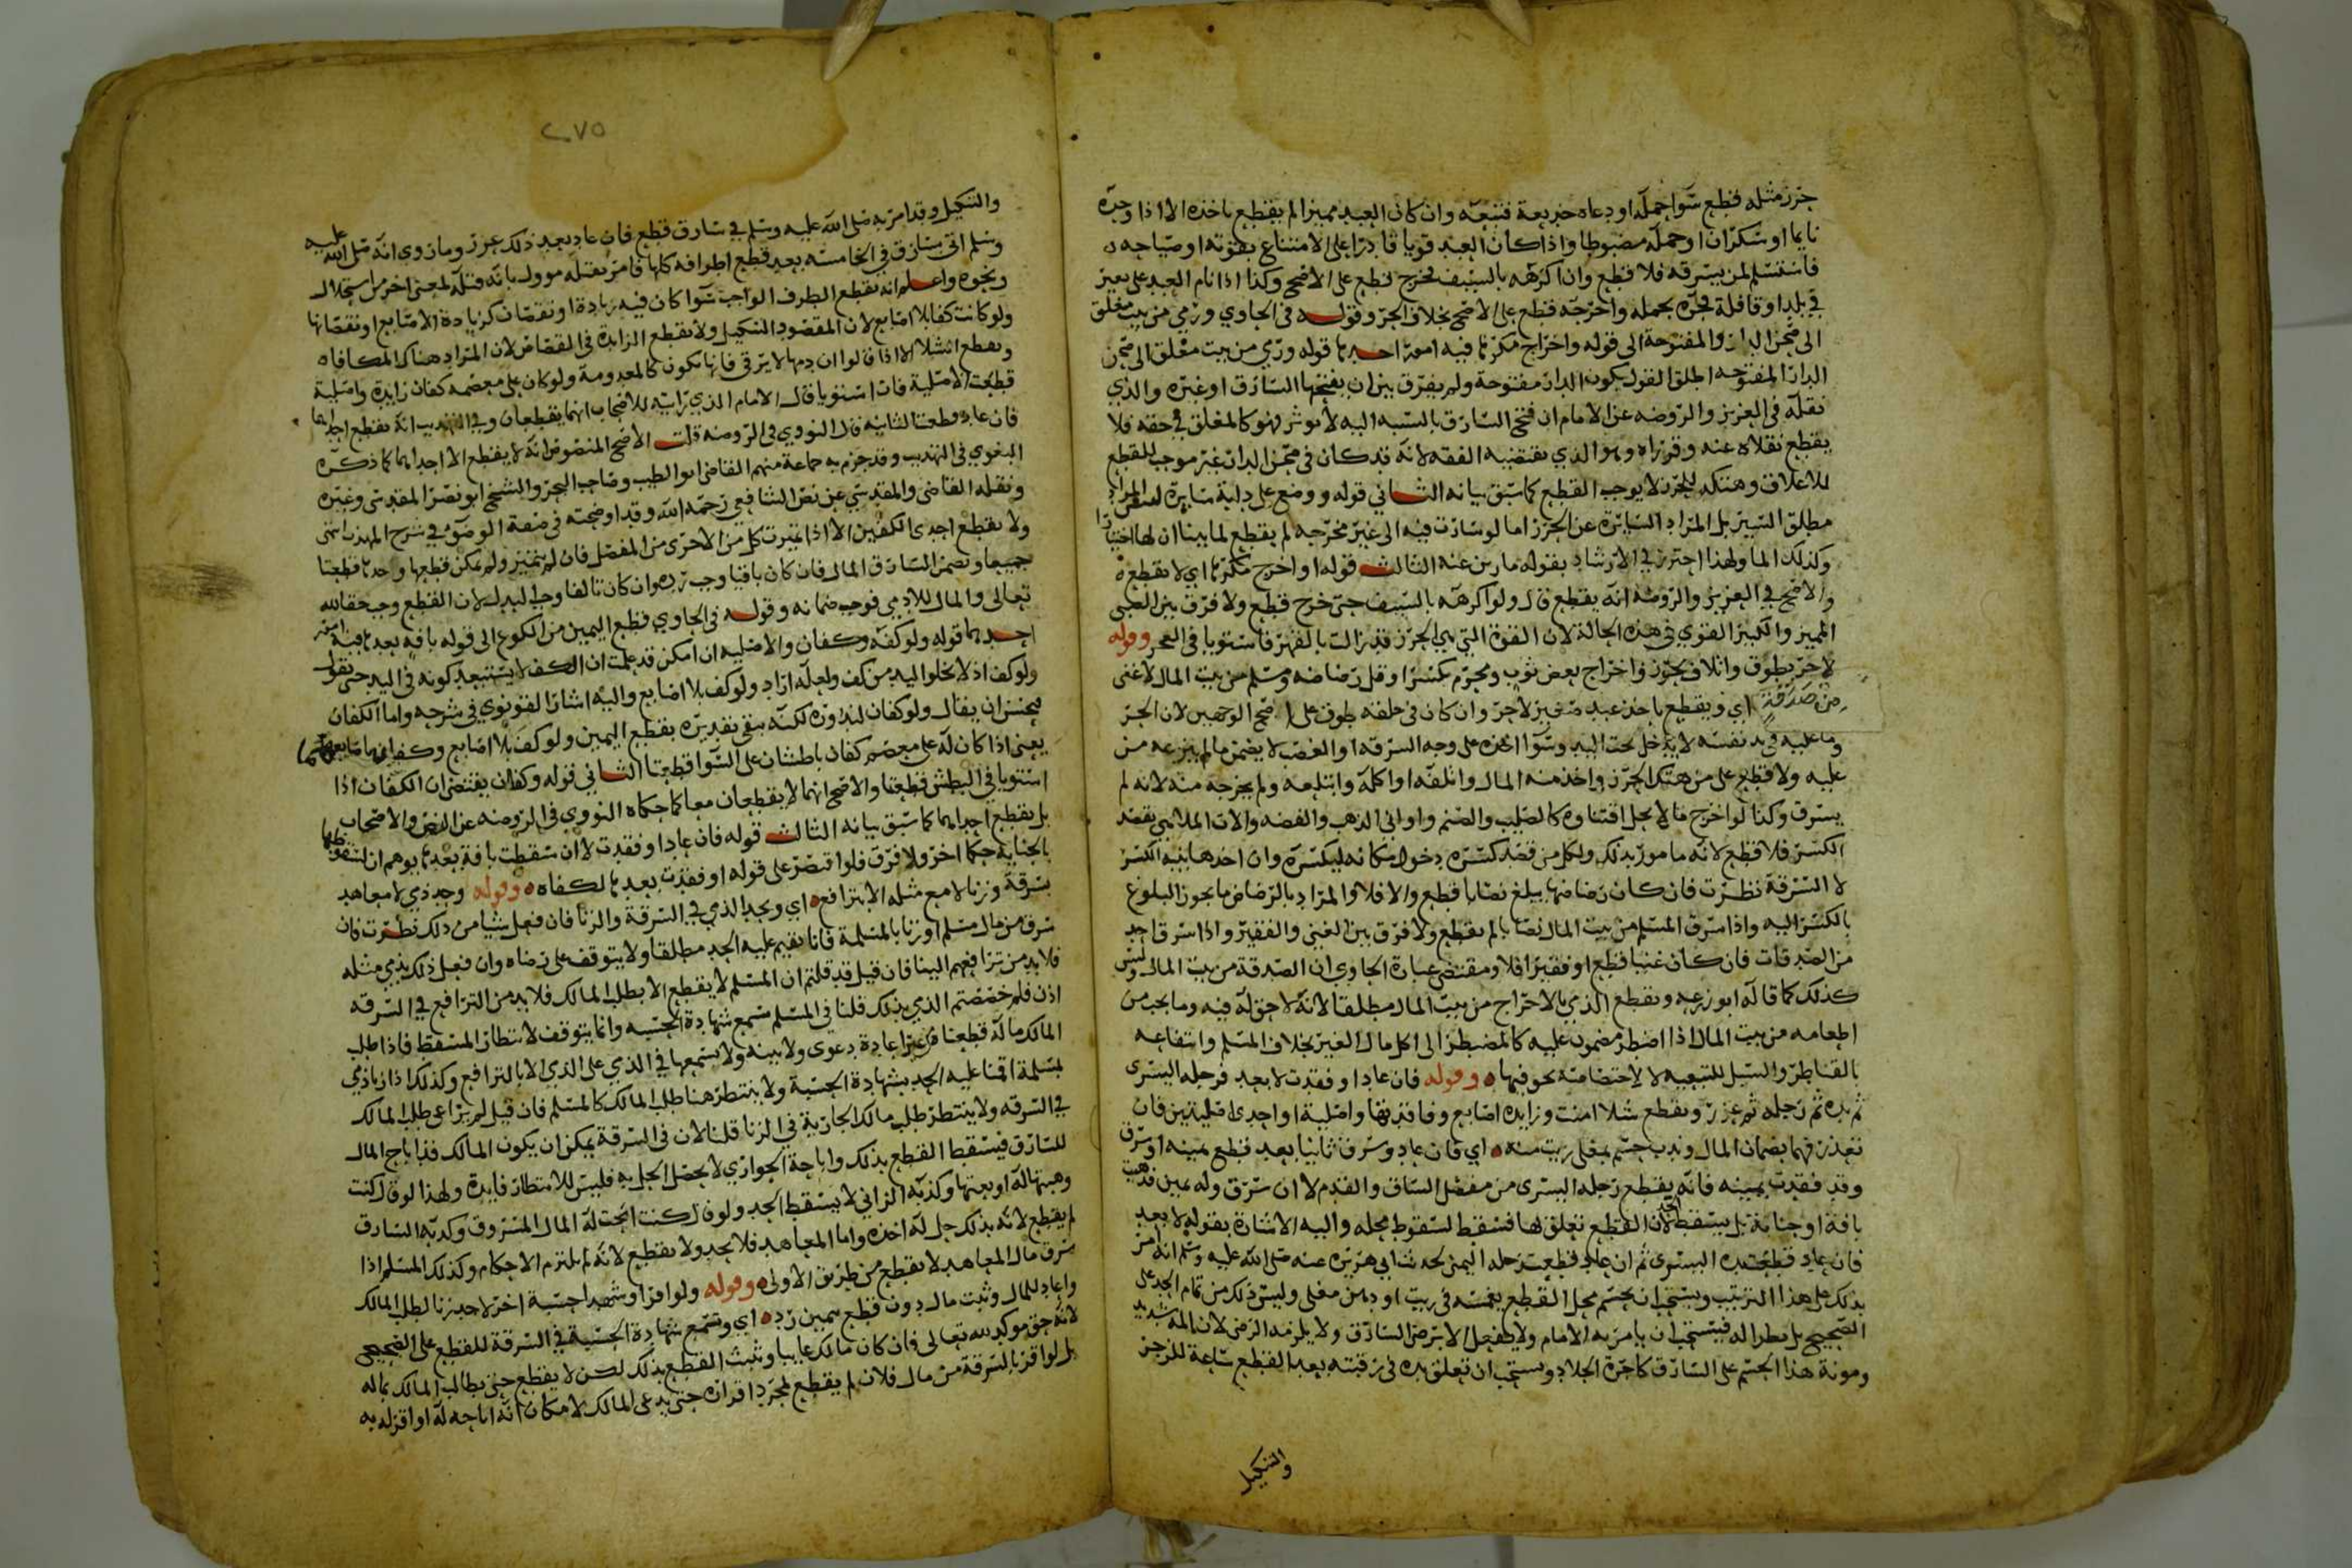 حرز مثله قطع سوا حمله او دعاه خديعة فتبعه وان كان العبد مميزا لم يقطع باخذه الا اذا وجده
نايما او سكران او حمله مضبوطا واذا كان العبد قويا قادرا على الامتناع بقوته او صياحه
فاستسلم لمن يسرقه فلا قطع وان اكرهه بالسيف فخرج قطع على الاصح وكذا اذا نام العبد على بعير
في بلد او قافلة فجره بجمله واخرجه قطع على الاصح بخلاف الحر وقوله في الحاوي ورمي من بيت مغلق
الى صحن الدار والمفتوحة الى قوله واخراج مكرها فيه امور احدها قوله ورمي من بيت مغلق الى صحن
الدار المفتوحه اطلق القول بكون الدار مفتوحة ولم يفرق بين ان يفتحها السارق او غيره والذي
نقله في العزيز والروضه عن الامام ان فتح السارق بالنسبه اليه لا يوثر فهو كالمغلق في حقه فلا
يقطع نقلاه عنه وقرراه وهو الذي يقتضيه الفقه لانه قد كان في صحن الدار غير موجب للقطع
للاغلاق وهتكه للحرز لا يوجب القطع كما سبق بيانه الثاني قوله ووضع على دابة سايرة ليس المراد
مطلق السير بل المراد السايرة عن الحرز اما لو سارت فيه الى غير مخرجه لم يقطع لما بينا ان لها اختيارا
وكذلك الما ولهذا احترز في الارشاد بقوله مارين عنه الثالث قوله او اخرج مكرها اي لا يقطع
والاصح في العزيز والروضه انه يقطع قال ولو اكرهه بالسيف حتى خرج قطع ولا فرق بين الصبي
المميز والكبير القوي في هذه الحالة لان القوة التي هي الحرز قد زالت بالقهر فاستويا في العجز وقوله
لا حر بطوق واتلاف بحرز واخراج بعض ثوب ومحرم كسرا وقل رضاضه ومسلم من بيت المال لا غني
من صدقة اي ويقطع باخذ عبد صغير لا حر وان كان في حلقه طوق على اصح الوجهين لان الحر
وما عليه في يد نفسه لا يدخل تحت اليد وسوا اخذه على وجه السرقه او الغصب لا يضمن مالم ينزعه من
عليه ولا قطع على من هتك الحرز واخذ منه المال واتلفه او اكله وابتلعه ولم يخرجه منه لانه لم
يسرق وكذا لو اخرج ما لا يحل اقتناوه كالصليب والصنم واواني الذهب والفضه والات الملاهي بقصد
الكسر فلا قطع لانه مامور بذلك ولكل من قصد كسره دخول مكانه ليكسره وان اخذها بنية الكسر
لا السرقة نظرت فان كان رضاضها يبلغ نصابا قطع والا فلا والمراد بالرضاض ما يجوز البلوغ
بالكسر اليه واذا سرق المسلم من بيت المال نصابا لم يقطع ولا فرق بين الغني والفقير واذا سرق احد
من الصدقات فان كان غنيا قطع او فقيرا فلا ومقتضى عبارة الحاوي ان الصدقة من بيت المال وليس
كذلك كما قاله ابو زرعه ويقطع الذمي بالاخراج من بيت المال مطلقا لانه لا حق له فيه وما يجب من
اطعامه من بيت المال اذا اضطر مضمون عليه كالمضطر الى اكل مال الغير بخلاف المسلم وانتفاعه
بالقناطر والسبل للتبعيه لا لاختصاصه بحق فيها وقوله فان عاد او فقدت لا بعد فرجله اليسرى
ثم يده ثم رجله ثم عزر ويقطع شلا امنت وزايده اصابع وفاقدتها واصلية او احدى اصليتين فان
تعذر فهما بضمان المال وندب حسم بمغلي زيت منه اي فان عاد وسرق ثانيا بعد قطع يمينه او سرق
وقد فقدت يمينه فانه يقطع رجله اليسرى من مفصل الساق والقدم لا ان سرق وله يمين فذهبت
بافة او جناية بل يسقط الحد لان القطع تعلق لها فسقط لسقوط محله واليه الاشارة بقوله لا بعد
فان عاد قطعت يده اليسرى ثم ان عاد قطعت رجله اليمنى لحديث ابي هريره عنه صلى الله عليه وسلم انه امر
بذلك على هذا الترتيب ويستحب ان يحسم محل القطع بغمسه في زيت او دهن مغلي وليس ذلك من تمام الحد على
الصحيح بل نظرا له فيستحب ان يامر به الامام ولا يفعل الا برضى السارق ولا يلزمه الرضى لان المه شديد
ومونة هذا الحسم على السارق كاجرة الجلاد ويستحب ان تعلق يده في رقبته بعد القطع ساعة للزجر
والتنكيل
٢٧٥
والتنكيل وقد امر به صلى الله عليه وسلم في سارق قطع فان عاد بعد ذلك عزر وما روي انه صلى الله عليه
وسلم اتى بسارق في الخامسة بعد قطع اطرافه كلها فامر بقتله موول بانه قتله لمعنى اخر من استحلال
ونحوه واعلم انه يقطع الطرف الواجب سوا كان فيه زيادة او نقصان كزيادة الاصابع او نقصانها
ولو كانت كفا بلا اصابع لان المقصود التنكيل ولا يقطع الزايدة في القصاص لان المراد هناك المكافاه
ويقطع الشلا الا اذا قالوا ان دمها لا يرقى فانها تكون كالمعدومة ولو كان على معصمه كفان زايدة واصلية
قطعت الاصلية فان استويا قال الامام الذي رايته للاصحاب انهما يقطعان وفي التهذيب انه يقطع احداهما
فان عاد قطعنا الثانيه قال النووي في الروضه قلت الاصح المنصوص انه لا يقطع الا احداهما كما ذكره
البغوي في التهذيب وقد جزم به جماعة منهم القاضي ابو الطيب وصاحب البحر والشيخ ابو نصر المقدسي وغيره
ونقله القاضي والمقدسي عن نص الشافعي رحمه الله وقد اوضحته في صفة الوضو في شرح المهذب انتهى
ولا يقطع احدى الكفين الا اذا تميزت كل من الاخرى من المفصل فان لم يتميز ولم يمكن قطعها وحدها قطعتا
جميعا ويضمن السارق المال فان كان باقيا وجب رده وان كان تالفا وجب البدل لان القطع وجب حقا لله
تعالى والمال للادمي فوجب ضمانه وقوله في الحاوي قطع اليمين من الكوع الى قوله بافه بعدها فيه امور
احدها قوله ولو كفه وكفان والاصليه ان امكن قد علمت ان الكف لا يستبعد كونه في اليد حتى يقول
ولو كف اذ لا يخلوا اليد من كف ولعله اراد ولو كف بلا اصابع واليه اشار القونوي في شرحه واما الكفان
فيحسن ان يقال ولو كفان لندوره لكنه يبقى تقديره يقطع اليمين ولو كف بلا اصابع وكفان
يعني اذا كان له على معصم كفان باطشان على السوا قطعتا الثاني قوله وكفان يقتضي ان الكفان اذا
استويا في البطش قطعتا والاصح انهما لا يقطعان معا كما حكاه النووي في الروضه عن النص والاصحاب
بل يقطع احداهما كما سبق بيانه الثالث قوله فان عاد او فقدت لا ان سقطت بافة بعدها يوهم ان لسقوطها
بالجناية حكما اخر ولا فرق فلو اقتصر على قوله او فقدت بعدها لكفاه وقوله وحد ذمي لا معاهد
بسرقة وزنا لا مع مثله الا بترافع اي ويحد الذمي في السرقة والزنا فان فعل شيا من ذلك نظرت فان
سرق من مال مسلم او زنا بالمسلمة فانا نقيم عليه الحد مطلقا ولا يتوقف على رضاه وان فعل ذلك بذمي مثله
فلا بد من ترافعهم الينا فان قيل قد قلتم ان المسلم لا يقطع الا بطلب المالك فلا بد من الترافع في السرقه
اذن فلم خصصتم الذمي بذلك قلنا في المسلم تسمع شهادة الحسبه وانما يتوقف لانتظار المسقط فاذا طلب
المالك ماله قطعنا من غير اعادة دعوى ولا بينه ولا تسمعها في الذمي على الذمي الا بالترافع وكذلك اذا زنا ذمي
بمسلمة اقمنا عليه الحد بشهادة الحسبة ولا ينتظر هنا طلب المالك كالمسلم فان قيل لم يراعى طلب المالك
في السرقه ولا ينتظر طلب مالك الجارية في الزنا قلنا لان في السرقة يمكن ان يكون المالك قد اباح المال
للسارق فيسقط القطع بذلك واباحة الجواري لا يحصل الحل به فليس للانتظار فايدة ولهذا لو قال كنت
وهبتها له او بعتها وكذبه الزاني لا يسقط الحد ولو قال كنت ابحت له المال المسروق وكذبه السارق
لم يقطع لانه بذلك حل له اخذه واما المعاهد فلا يحد ولا يقطع لانه لم يلتزم الاحكام وكذلك المسلم اذا
سرق مال المعاهد لا يقطع من طريق الاولى وقوله ولو اقرا وشهدا حسبة اخر لا حد زنا لطلب المالك
واعاد للمال وثبت مال دون قطع بيمين رد اي وتسمع شهادة الحسبة في السرقة للقطع على الصحيح
لانه حق موكد لله تعالى فان كان مالك غايبا وثبت القطع بذلك لكن لا يقطع حتى يطالب المالك بماله
بل لو اقر بالسرقة من مال فلان لم يقطع لمجرد اقراره حتى يدعي المالك لامكان انه اباحه له او اقر له به